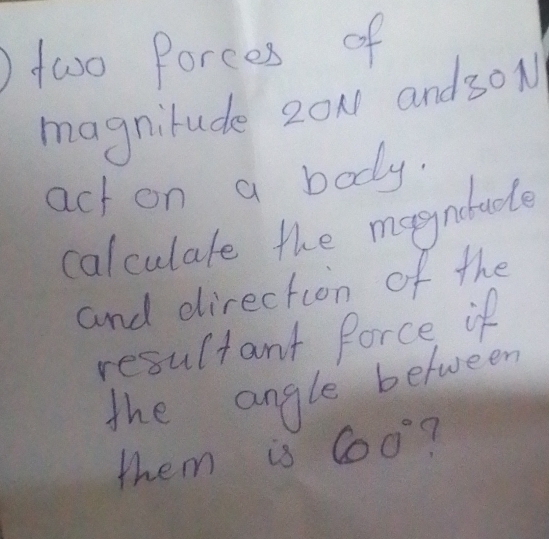 ) two forces of
magnitude 20N and 30N
act on a body.
calculate the magnitude
and direction of the
resultant force if
the angle between
them is 60°?